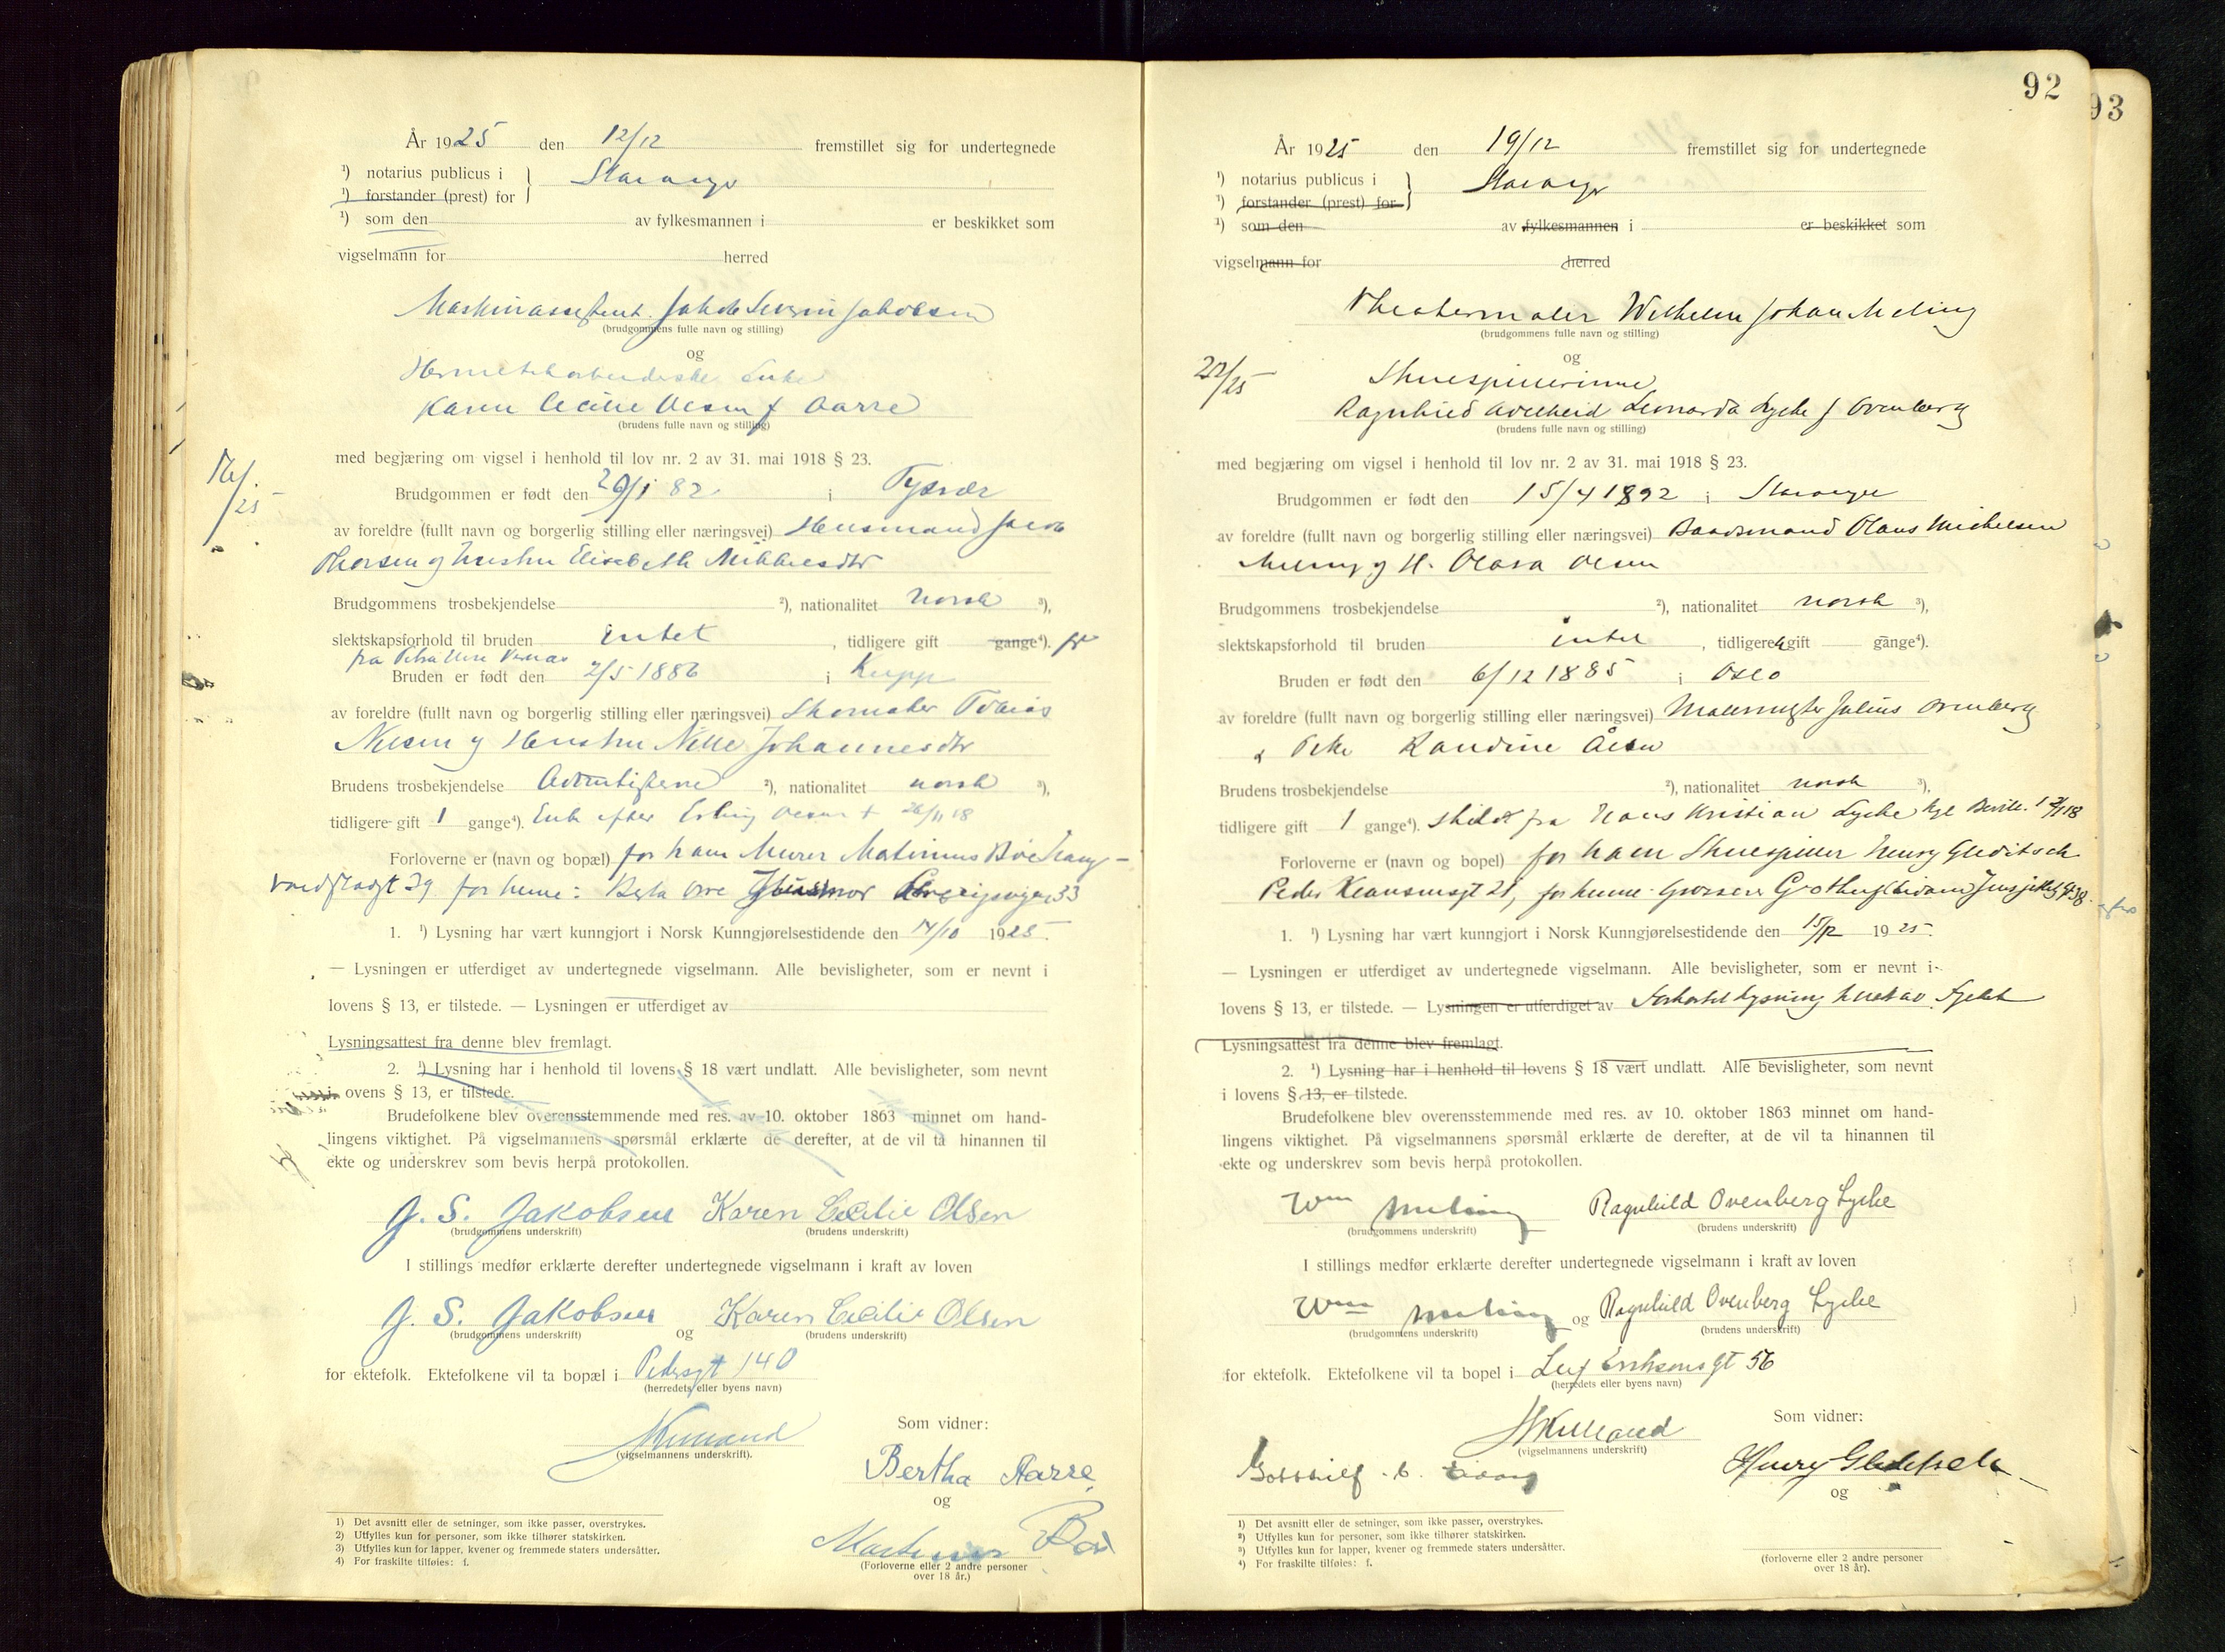 År 1925 den 12/12 fremstillet sig for undertegnede
¹) notarius publicus i } Stavanger
¹) forstander (prest) for
¹) som den av fylkesmannen i er beskikket som
vigselmann for herred
Maskinassistent Jakob Severin Jakobsen
(brudgommens fulle navn og stilling)
og
Hermetikarbeiderske Enke
Karen Cecilie Olsen f Aarre
(brudens fulle navn og stilling)
med begjæring om vigsel i henhold til lov nr. 2 av 31. mai 1918 § 23.
Brudgommen er født den 29/1 82 i Tysvær
av foreldre (fullt navn og borgerlig stilling eller næringsvei) Husmand Jacob
Thorsen og hustru Elisabeth Mikkelsdtr
Brudgommens trosbekjendelse ²), nationalitet norsk ³),
slektskapsforhold til bruden intet , tidligere gift gange⁴). fr
fra Petra
Bruden er født den 2/5 1886 i Klepp
av foreldre (fullt navn og borgerlig stilling eller næringsvei) Skomaker Tobias
Nilsen og Hustru Nille Johannesdtr
Brudens trosbekjendelse Adventisterne ²), nationalitet norsk ³),
tidligere gift 1 gange⁴). Enke efter Erling Olsen + 26/11 18
Forloverne er (navn og bopæl) for ham Murer Martinius Bøe Haug-
valdstadgt 39 for henne: Berta Aarre Husmor 33
1. ¹) Lysning har vært kunngjort i Norsk Kunngjørelsestidende den 14/10 1925.
— Lysningen er utferdiget av undertegnede vigselmann. Alle bevisligheter, som er nevnt i
lovens § 13, er tilstede. — Lysningen er utferdiget av
Lysningsattest fra denne blev fremlagt.
2. ¹) Lysning har i henhold til lovens § 18 vært undlatt. Alle bevisligheter, som nevnt
i ovens § 13, er tilstede.
Brudefolkene blev overensstemmende med res. av 10. oktober 1863 minnet om hand-
lingens viktighet. På vigselmannens spørsmål erklærte de derefter, at de vil ta hinannen til
ekte og underskrev som bevis herpå protokollen.
J. S. Jakobsen Karen Cecilie Olsen
(brudgommens underskrift) (brudens underskrift)
I stillings medfør erklærte derefter undertegnede vigselmann i kraft av loven
J. S. Jakobsen og Karen Cecilie Olsen
(brudgommens underskrift) (brudens underskrift)
for ektefolk. Ektefolkene vil ta bopæl i Pedersgt 140
(herredets eller byens navn)
Kielland
(vigselmannens underskrift).
Som vidner:
Bertha Aarre
og
Martinius Bøe
(Forloverne eller 2 andre personer
over 18 år.)
1) Det avsnitt eller de setninger, som ikke passer, overstrykes.
2) Utfylles kun for personer, som ikke tilhører statskirken.
3) Utfylles kun for lapper, kvener og fremmede staters undersåtter.
4) For fraskilte tilføies: f.
92
93
År 1925 den 19/12 fremstillet sig for undertegnede
¹) notarius publicus i } Stavanger
¹) forstander (prest) for
¹) som den av fylkesmannen i er beskikket som
vigselmann for herred
Theatermaler Wilhelm Johan Meling
(brudgommens fulle navn og stilling)
og
Skuespillerinne
Ragnhild Adelheid Leonarda Lycke f Ovenberg
(brudens fulle navn og stilling)
med begjæring om vigsel i henhold til lov nr. 2 av 31. mai 1918 § 23.
Brudgommen er født den 15/4 1892 i Stavanger
av foreldre (fullt navn og borgerlig stilling eller næringsvei) Baadsmand Olaus Michelsen
Meling og H. Olava Olsen
Brudgommens trosbekjendelse ²), nationalitet norsk ³),
slektskapsforhold til bruden intet , tidligere gift gange⁴).
Bruden er født den 6/12 1885 i Oslo
av foreldre (fullt navn og borgerlig stilling eller næringsvei) Malermester Julius Ovenberg
Randine Olsen
Brudens trosbekjendelse ²), nationalitet norsk ³),
tidligere gift 1 gange⁴). skilt fra Hans Kristian Lycke kgl Bevill.
Forloverne er (navn og bopel) for ham Skuespiller Henry Gleditsch
Peder Klausensgt 21, for henne Grosserer
1. ¹) Lysning har vært kunngjort i Norsk Kunngjørelsestidende den 15/12 1925.
— Lysningen er utferdiget av undertegnede vigselmann. Alle bevisligheter, som er nevnt i
lovens § 13, er tilstede. — Lysningen er utferdiget av Forkortet lysning
Lysningsattest fra denne blev fremlagt.
2. ¹) Lysning har i henhold til lovens § 18 vært undlatt. Alle bevisligheter, som nevnt
i lovens § 13, er tilstede.
Brudefolkene blev overensstemmende med res. av 10. oktober 1863 minnet om hand-
lingens viktighet. På vigselmannens spørsmål erklærte de derefter, at de vil ta hinannen til
ekte og underskrev som bevis herpå protokollen.
Wm Meling Ragnhild Ovenberg Lycke
(brudgommens underskrift) (brudens underskrift)
I stillings medfør erklærte derefter undertegnede vigselmann i kraft av loven
Wm Meling og Ragnhild Ovenberg Lycke
(brudgommens underskrift) (brudens underskrift)
for ektefolk. Ektefolkene vil ta bopel i Leif Eriksons Gt 56
(herredets eller byens navn)
Kielland
(vigselmannens underskrift)
Som vidner:
Henry Gleditsch
og
(forloverne eller 2 andre personer
over 18 år).
1) Det avsnitt eller de setninger, som ikke passer, overstrykes.
²) Utfylles kun for personer, som ikke tilhører statskirken.
³) Utfylles kun for lapper, kvener og fremmede staters undersåtter.
⁴) For fraskilte tilføies: f.